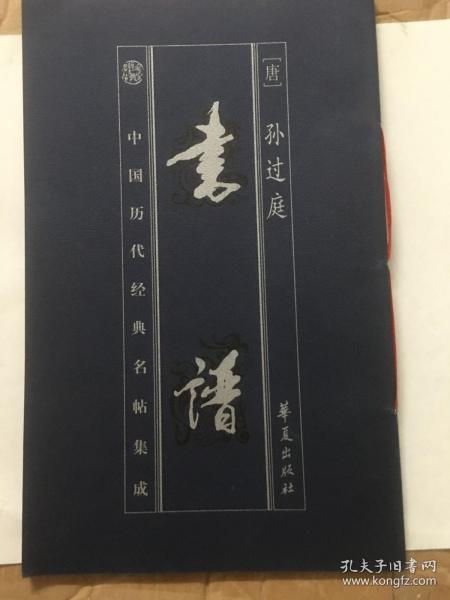 [唐]
孙过庭
书谱
中国历代经典名帖集成
華夏出版社
孔夫子旧书网
www.kongfz.com